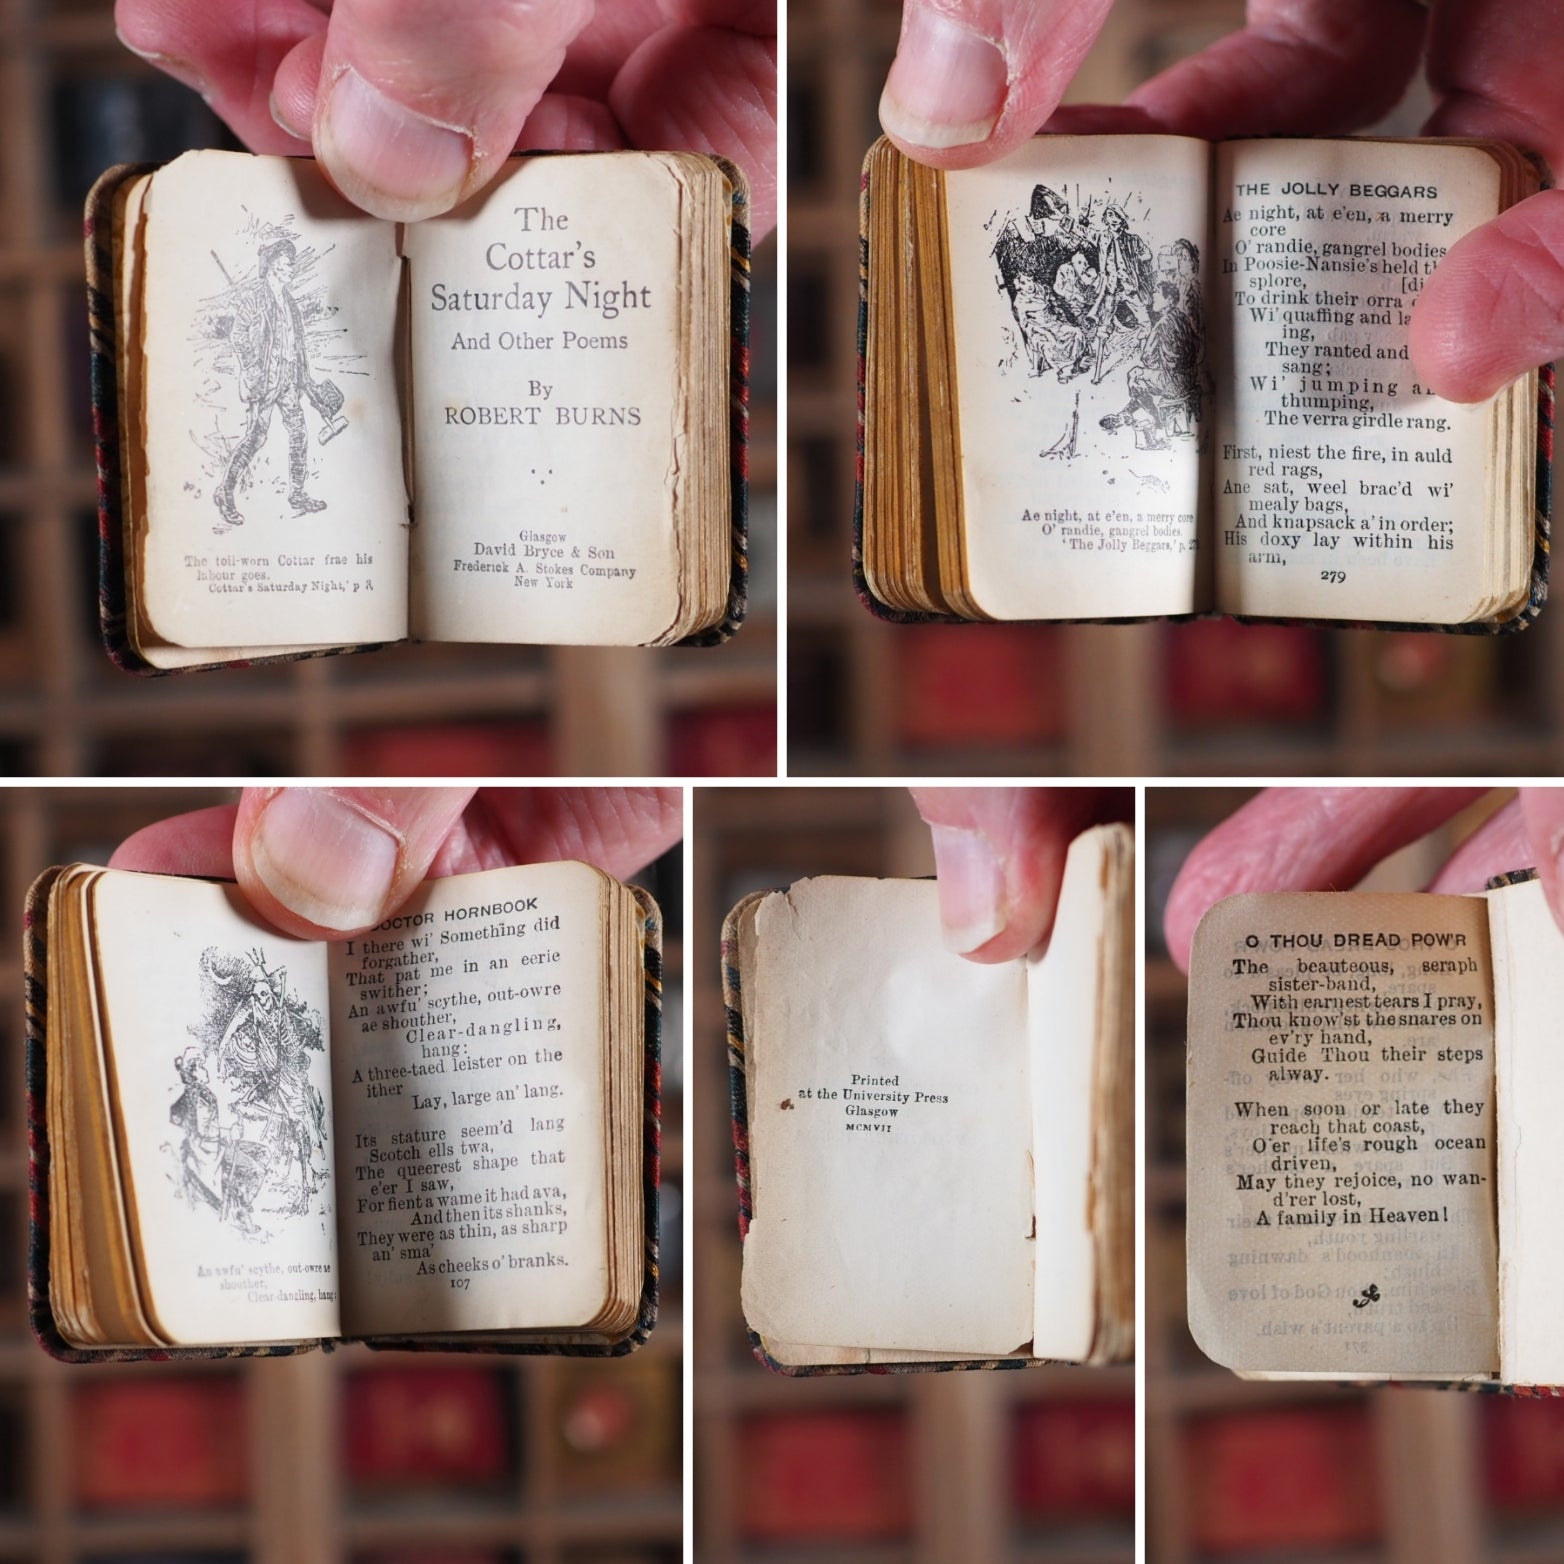 The toil-worn Cottar frae his
labour goes.
Cottar's Saturday Night,' p 3.
The
Cottar's
Saturday Night
And Other Poems
By
ROBERT BURNS
Glasgow
David Bryce & Son
Frederick A. Stokes Company
New York
Ae night, at e'en, a merry core
O' randie, gangrel bodies.
'The Jolly Beggars,' p.
THE JOLLY BEGGARS
Ae night, at e'en, a merry
core
O' randie, gangrel bodies
In Poosie-Nansie's held
splore,
To drink their orra
Wi' quaffing and
ing,
They ranted and
sang;
Wi' jumping
thumping,
The verra girdle rang.
First, niest the fire, in auld
red rags,
Ane sat, weel brac'd wi'
mealy bags,
And knapsack a' in order;
His doxy lay within his
arm,
279
An awfu' scythe, out-owre ae
shouther,
Clear-dangling, hang:
DOCTOR HORNBOOK
I there wi' Something did
forgather,
That pat me in an eerie
swither;
An awfu' scythe, out-owre
ae shouther,
Clear-dangling,
hang:
A three-taed leister on the
ither
Lay, large an' lang.
Its stature seem'd lang
Scotch ells twa,
The queerest shape that
e'er I saw,
For fient a wame it had ava,
And then its shanks,
They were as thin, as sharp
an' sma'
As cheeks o' branks.
107
Printed
at the University Press
Glasgow
MCMVII
O THOU DREAD POW'R
The beauteous, seraph
sister-band,
With earnest tears I pray,
Thou know'st the snares on
ev'ry hand,
Guide Thou their steps
alway.
When soon or late they
reach that coast,
O'er life's rough ocean
driven,
May they rejoice, no wan-
d'rer lost,
A family in Heaven!